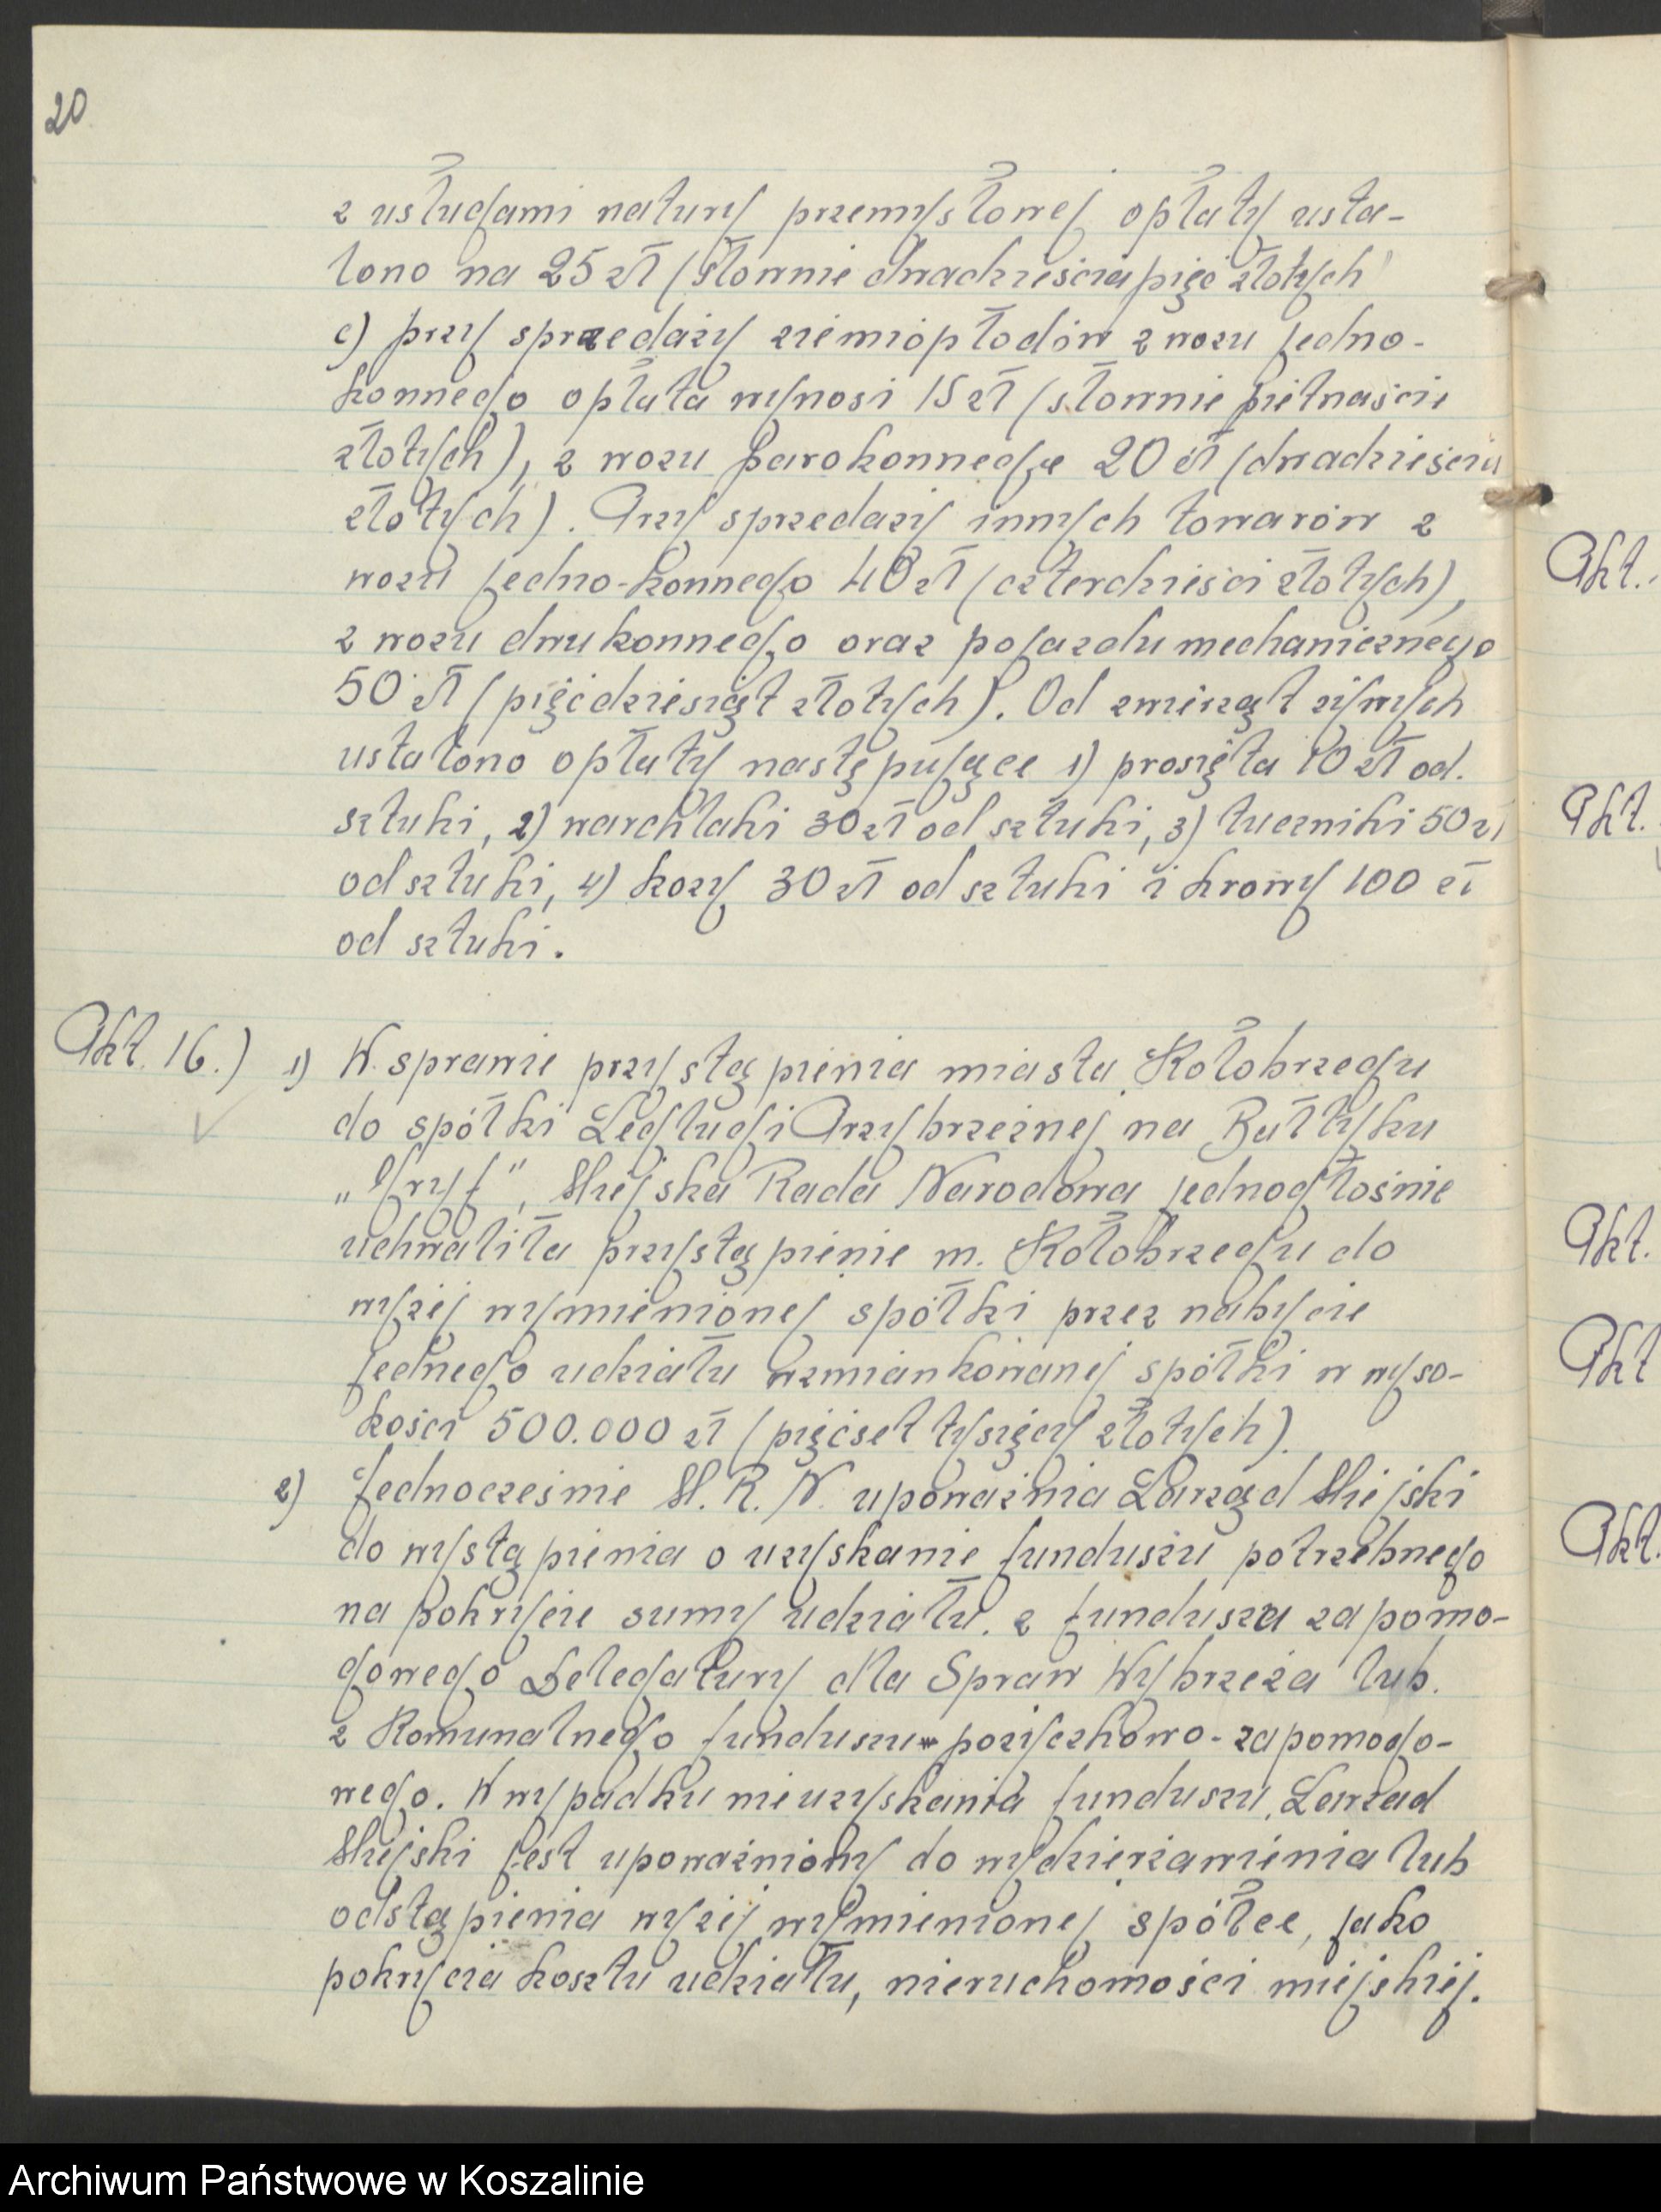 20
z usługami natury przemysłowej opłaty usta-
lono na 25 zł (słownie dwadzieściapięć złotych)
c) przy sprzedaży ziemiopłodów z wozu jedno-
konnego opłata wynosi 15 zł (słownie piętnaście
złotych), z wozu parokonnego 20 zł (dwadzieścia
złotych). Przy sprzedaży innych towarów z
wozu jedno-konnego 40 zł (czterdzieści złotych),
z wozu dwukonnego oraz pojazdu mechanicznego
50 zł (pięćdziesiąt złotych). Od zwierząt żywych
ustalono opłaty następujące 1) prosięta 10 zł od
sztuki, 2) warchlaki 30 zł od sztuki, 3) tuczniki 50 zł
od sztuki, 4) kozy 30 zł od sztuki i krowy 100 zł
od sztuki.
Akt. 16.) 1) W sprawie przystąpienia miasta Kołobrzegu
do spółki Żeglugi Przybrzeżnej na Bałtyku
„Gryf", Miejska Rada Narodowa jednogłośnie
uchwaliła przystąpienie m. Kołobrzegu do
wyżej wymienionej spółki przez nabycie
jednego udziału wzmiankowanej spółki w wyso-
kości 500.000 zł (pięćset tysięcy złotych).
2) Jednocześnie M. R. N. upoważnia Zarząd Miejski
do wystąpienia o uzyskanie funduszu potrzebnego
na pokrycie sumy udziału z funduszu zapomo-
gowego Delegatury dla Spraw Wybrzeża lub
z Komunalnego funduszu pożyczkowo-zapomogo-
wego. W wypadku nieuzyskania funduszu, Zarząd
Miejski jest upoważniony do wydzierżawienia lub
odstąpienia wyżej wymienionej spółce, jako
pokrycia kosztu udziału, nieruchomości miejskiej.
Akt.
Akt.
Akt.
Akt
Akt.
Archiwum Państwowe w Koszalinie